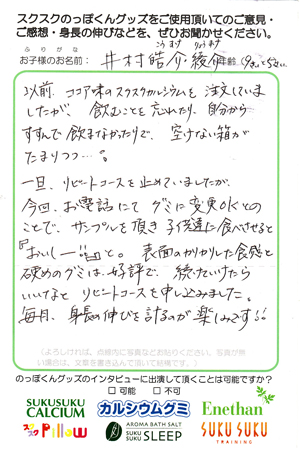 スクスクのっぽくんグッズをご使用頂いてのご意見・
ご感想・身長の伸びなどを、ぜひお聞かせください。
ふりがな
お子様のお名前: 井村皓介・綾介 年齢(9才と5さい)
以前、ココア味のスクスクカルシウムを注文していま
したが、飲むことを忘れたり、自分から
すすんで飲まなかったりで、空けない箱が
たまりつつ…。
一旦、リピートコースを止めていましたが、
今回、お電話にてグミに変更OKとの
ことで、サンプルを頂き子供達に食べさせると
『おいしー!!』と。表面のカリカリした食感と
硬めのグミは好評で、続けていけたら
いいなとリピートコースを申し込みました。
毎月、身長の伸びを計るのが楽しみです!!
(よろしければ、点線内に写真などお貼りください。写真が無
い場合は、文章を書き込んで頂いて結構です。)
のっぽくんグッズのインタビューに出演して頂くことは可能ですか?
□可能 □不可
SUKUSUKU
CALCIUM
カルシウムグミ
Enethan
スクスク
Pillow
AROMA BATH SALT
SUKU SUKU
SLEEP
SUKU SUKU
TRAINING